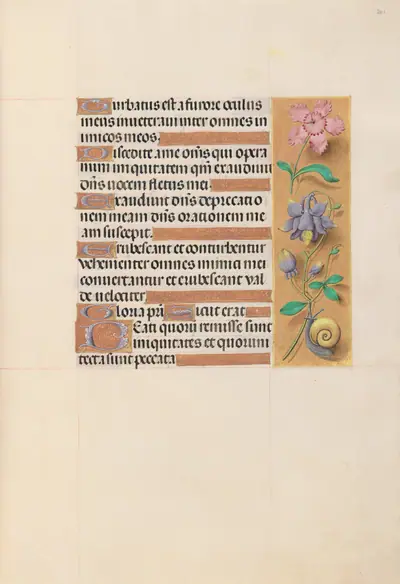 Turbatus est a furore oculus
meus inueteraui inter omnes in
imicos meos.
Discedite a me om̃s qui opera
mini iniquitatem qm̃ exaudiuit
dñs uocem fletus mei.
Exaudiuit dñs deprecatio
nem meam dñs orationem me
am suscepit.
Erubescant et conturbentur
vehementer omnes inimici mei
conuertantur et erubescant val
de uelociter
Gloria pr̃i Sicut erat
Beati quorũ remisse sunt
iniquitates et quorum
tecta sunt peccata